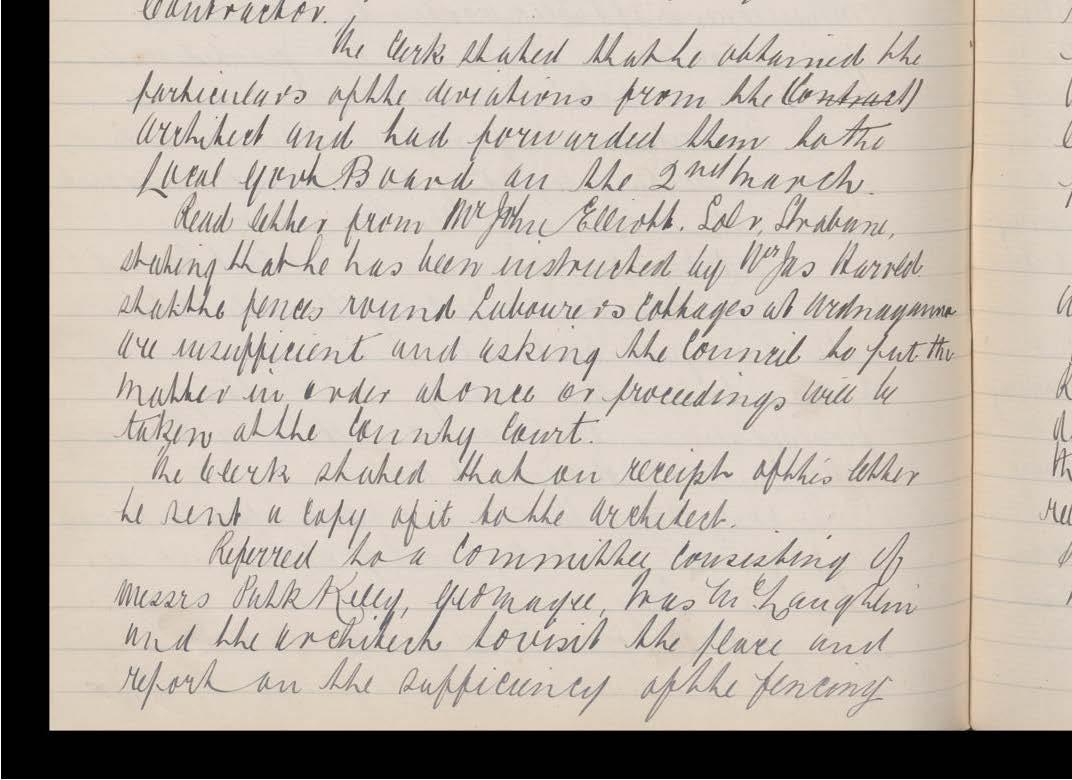 Contractor.
The Clerk stated that he obtained the
particulars of the deviations from the Contract
Architect and had forwarded them to the
Local Govt Board on the 2nd March.
Read letter from Mr John Elliott. Solr, Strabane,
stating that he has been instructed by Mr Jas
that the fences round Labourers Cottages at Ardnaganna
are insufficient and asking the Council to put the
matter in order at once or proceedings will be
taken at the County Court.
The Clerk stated that on receipt of this letter
he sent a copy of it to the Architect.
Referred to a Committee consisting of
Messrs Patk Kelly, Geo Magee, McLaughlin
and the Architect to visit the place and
report on the sufficiency of the fencing